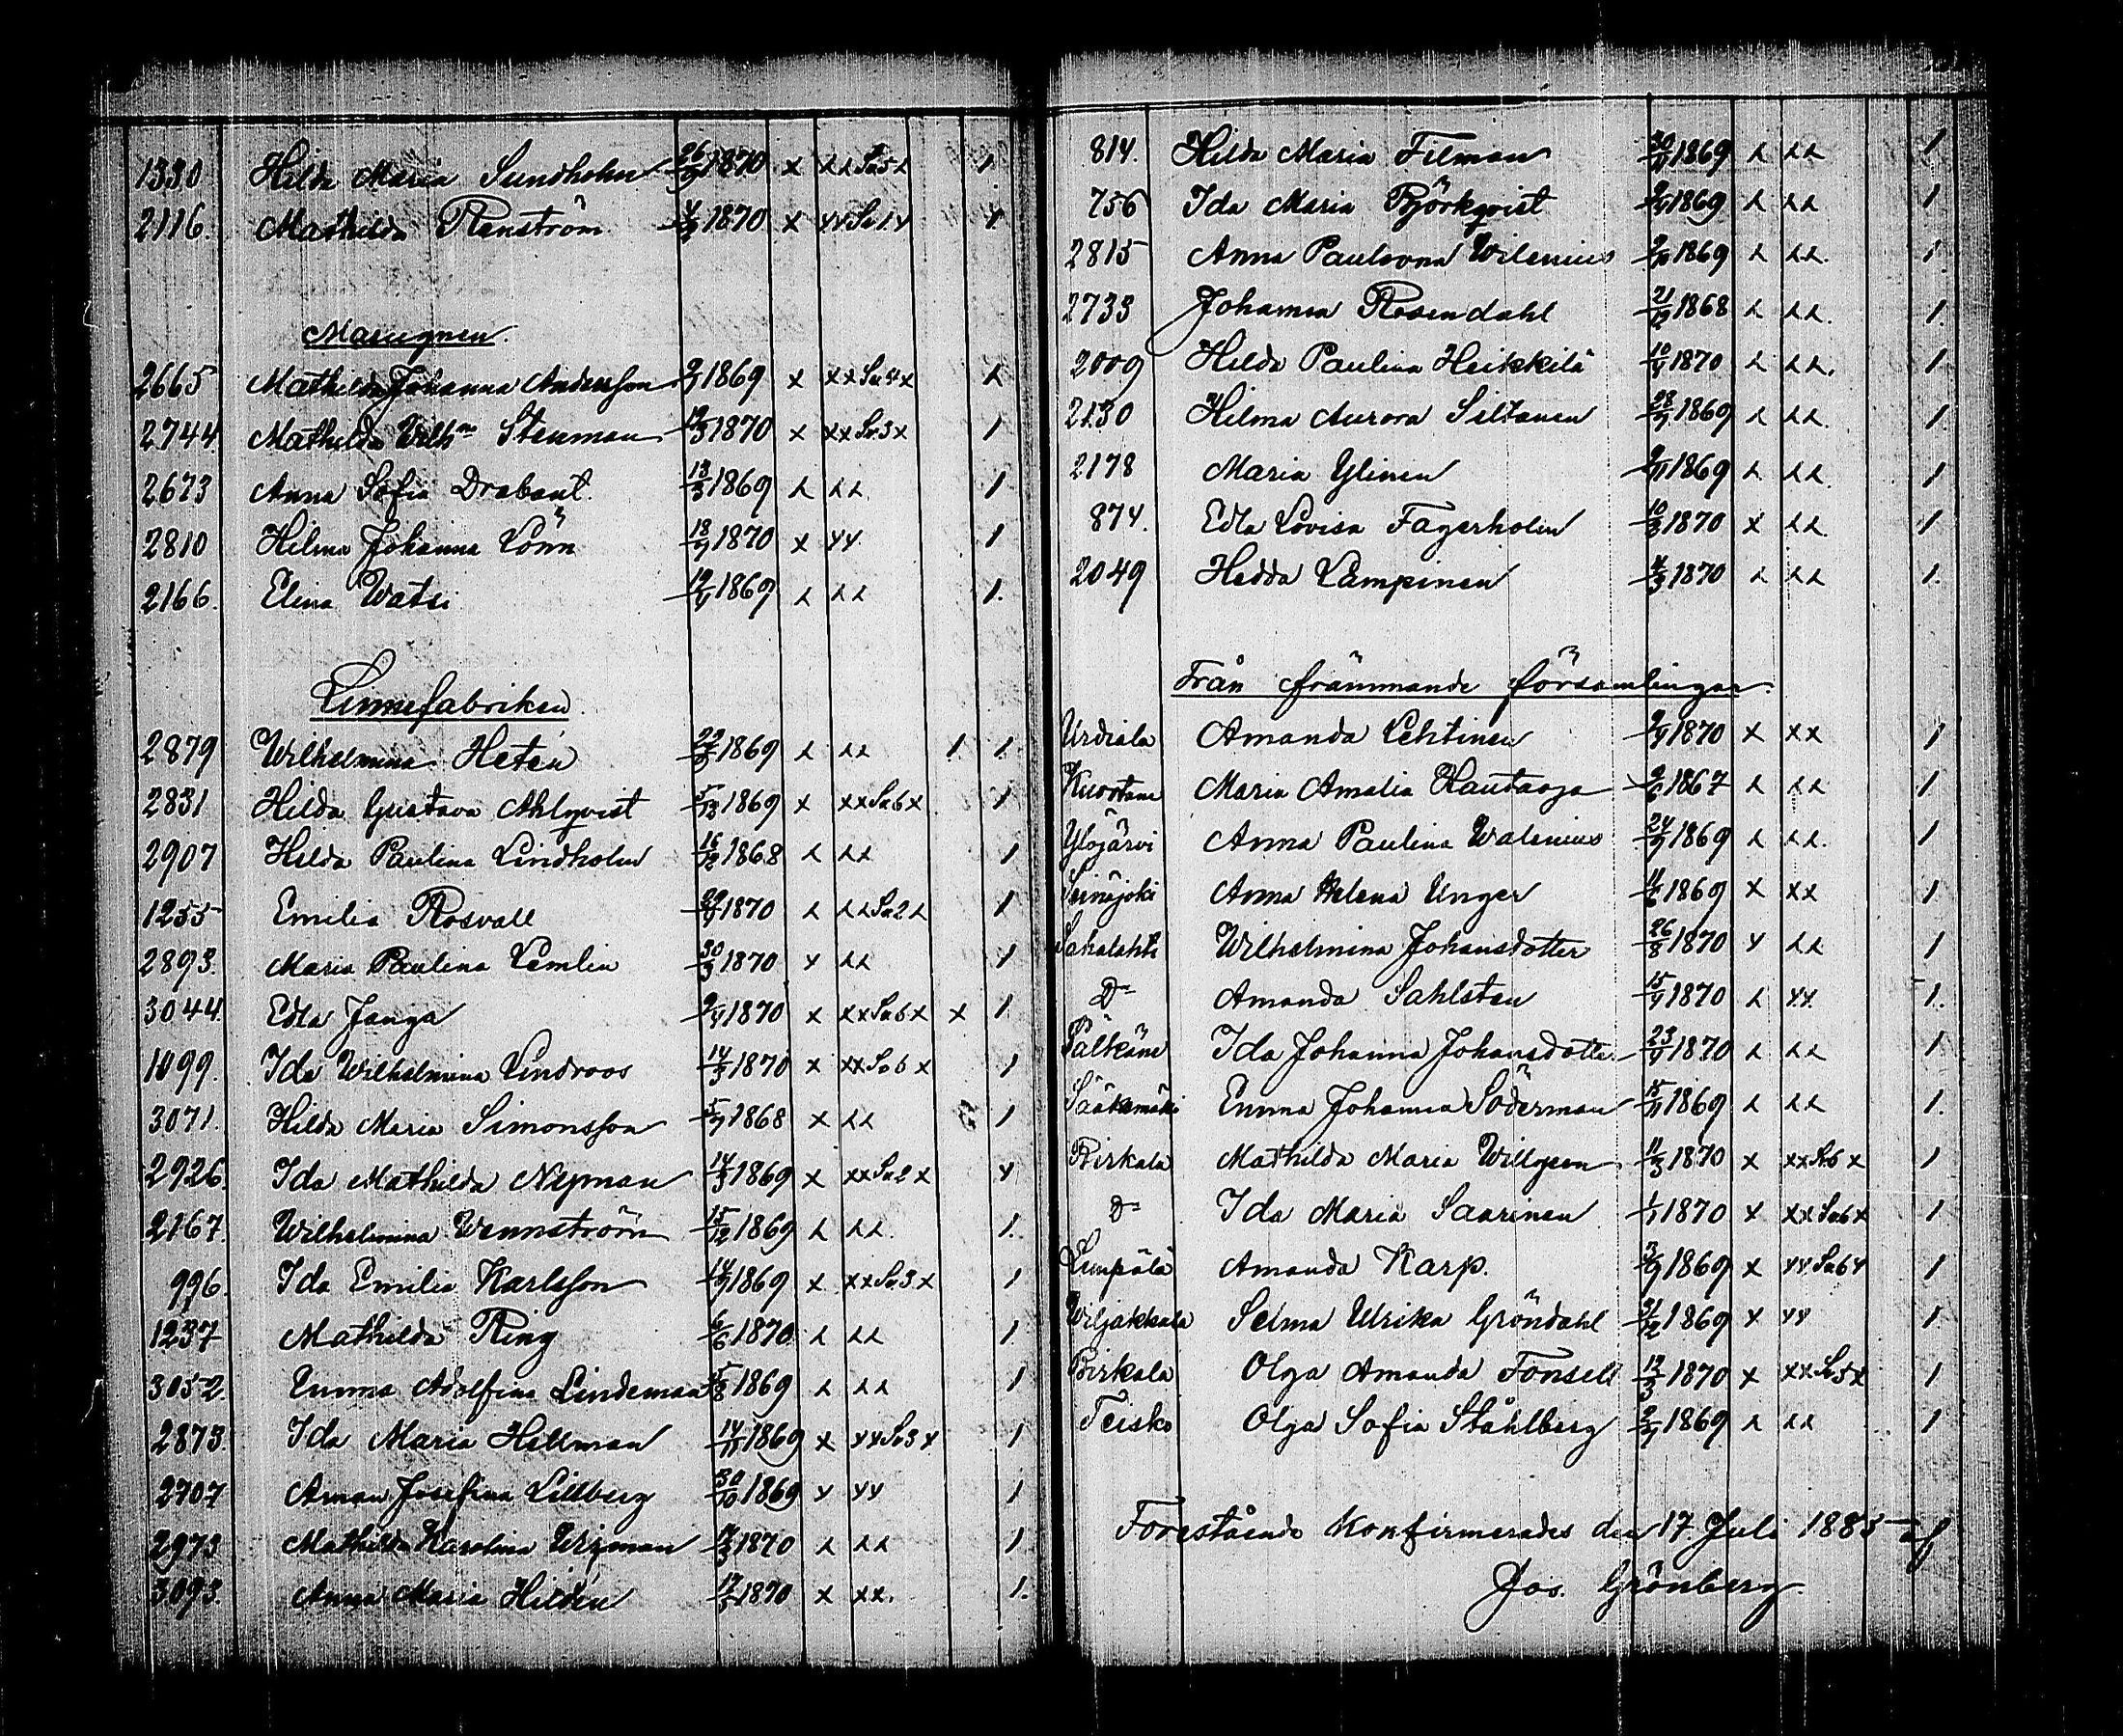 1330 Hilda Maria Sundholm 26/3 1870 x xx Sa 5 x 1.
2116. Mathilda Renström 1870 x xx Sa 1 x x
Masugnen.
2665 Mathilda Johanna Andersson 1869 x xx Sa 4 x x
2744. Mathilda Wilhna Stenman 1870 x xx Sa 3 x 1
2673 Anna Sofia Drabant. 13/3 1869 x xx 1
2810 Hilma Johanna Lönn 1870 x xx 1
2166. Elina Watsi 1869 x xx 1.
Linnefabriken.
2879 Wilhelmina Hetén 1869 x xx 1 1.
2831 Hilda Gustava Ahlqvist 5/12 1869 x xx Sa 6 x 1
2907 Hilda Paulina Lindholm 16/12 1868 x xx 1
1255 Emilia Rosvall 1870 x xx Sa 2 x 1
2893. Maria Paulina Lemlin 30/3 1870 x xx 1
3044. Edla Janga 1870 x xx Sa 6 x x 1.
1099. Ida Wilhelmina Lindroos 14/3 1870 x xx Sa 6 x 1
3071. Hilda Maria Simonsson 1868 x xx 1
2926. Ida Mathilda Nyman 14/3 1869 x xx Sa 2 x x
2167. Wilhelmina Wennström 15/12 1869 x xx. 1.
996. Ida Emilia Karlsson 1869 x xx Sa 3 x 1
1237 Mathilda Ring 6/6 1870 x xx 1.
3052. Emma Adolfina Lindeman 5/8 1869 x xx 1
2873. Ida Maria Hellman 14/11 1869 x xx Sa 3 x 1
2707 Aman Josefina Lillberg 30/10 1869 x xx 1
2973 Mathilda Karolina Wigman 1870 x xx 1
3093. Anna Maria Hildén 1870 x xx. 1.
814. Hilda Maria Filman 1869 x xx 1
756 Ida Maria Björkqvist 1869 x xx 1
2815 Anna Paulovna Wilenius 1869 x xx. 1.
2733 Johanna Rosendahl 21/12 1868 x xx. 1.
2009 Hilda Paulina Heikkilä 1870 x xx. 1
2130 Hilma Aurora Siltanen 1869 x xx. 1.
2178 Maria Ylinen 1869 x xx. 1
874. Edla Lovisa Fagerholm 10/3 1870 x xx. 1
2049 Hedda Lampinen 4/3 1870 x xx 1.
Från främmande församlingar.
Urdiala Amanda Lehtinen 1870 x xx 1
Kuortane Maria Amalia Rautaoja 1867 x xx 1
Ylöjärvi Anna Paulina Walenius 1869 x xx. 1
Seinäjoki Anna Helena Unger 1869 x xx 1
Sahalahti Wilhelmina Johansdotter 26/8 1870 x xx 1
Do Amanda Sahlsten 1870 x xx. 1.
Pälkäne Ida Johanna Johansdotter 1870 x xx 1
Sääksmäki Emma Johanna Söderman 1869 x xx 1.
Birkala Mathilda Maria Willgren 11/3 1870 x xx Sa 6 x 1
Do Ida Maria Saarinen 1/1 1870 x xx Sa 6 x 1
Lempälä Amanda Karp. 1869 x xx Sa 6 x 1
Wiljakkala Selma Ulrika Gröndahl 31/12 1869 x xx 1
Birkala Olga Amanda Fonsell 1870 x xx Sa 5 x 1
Teisko Olga Sofia Ståhlberg 1869 x xx 1
Förestående konfirmerades den 17 Juli 1885 af
Jos. Grönberg.